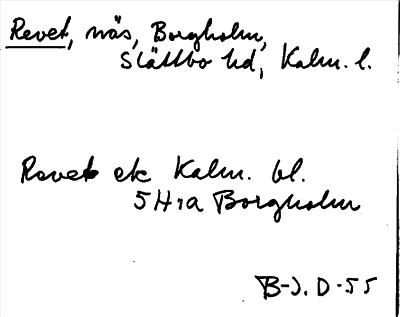 Revet, näs, Borgholm,
Slättbo hd, Kalm. l.
Revet ek Kalm. bl.
5H1a Borgholm
B-J. D-55